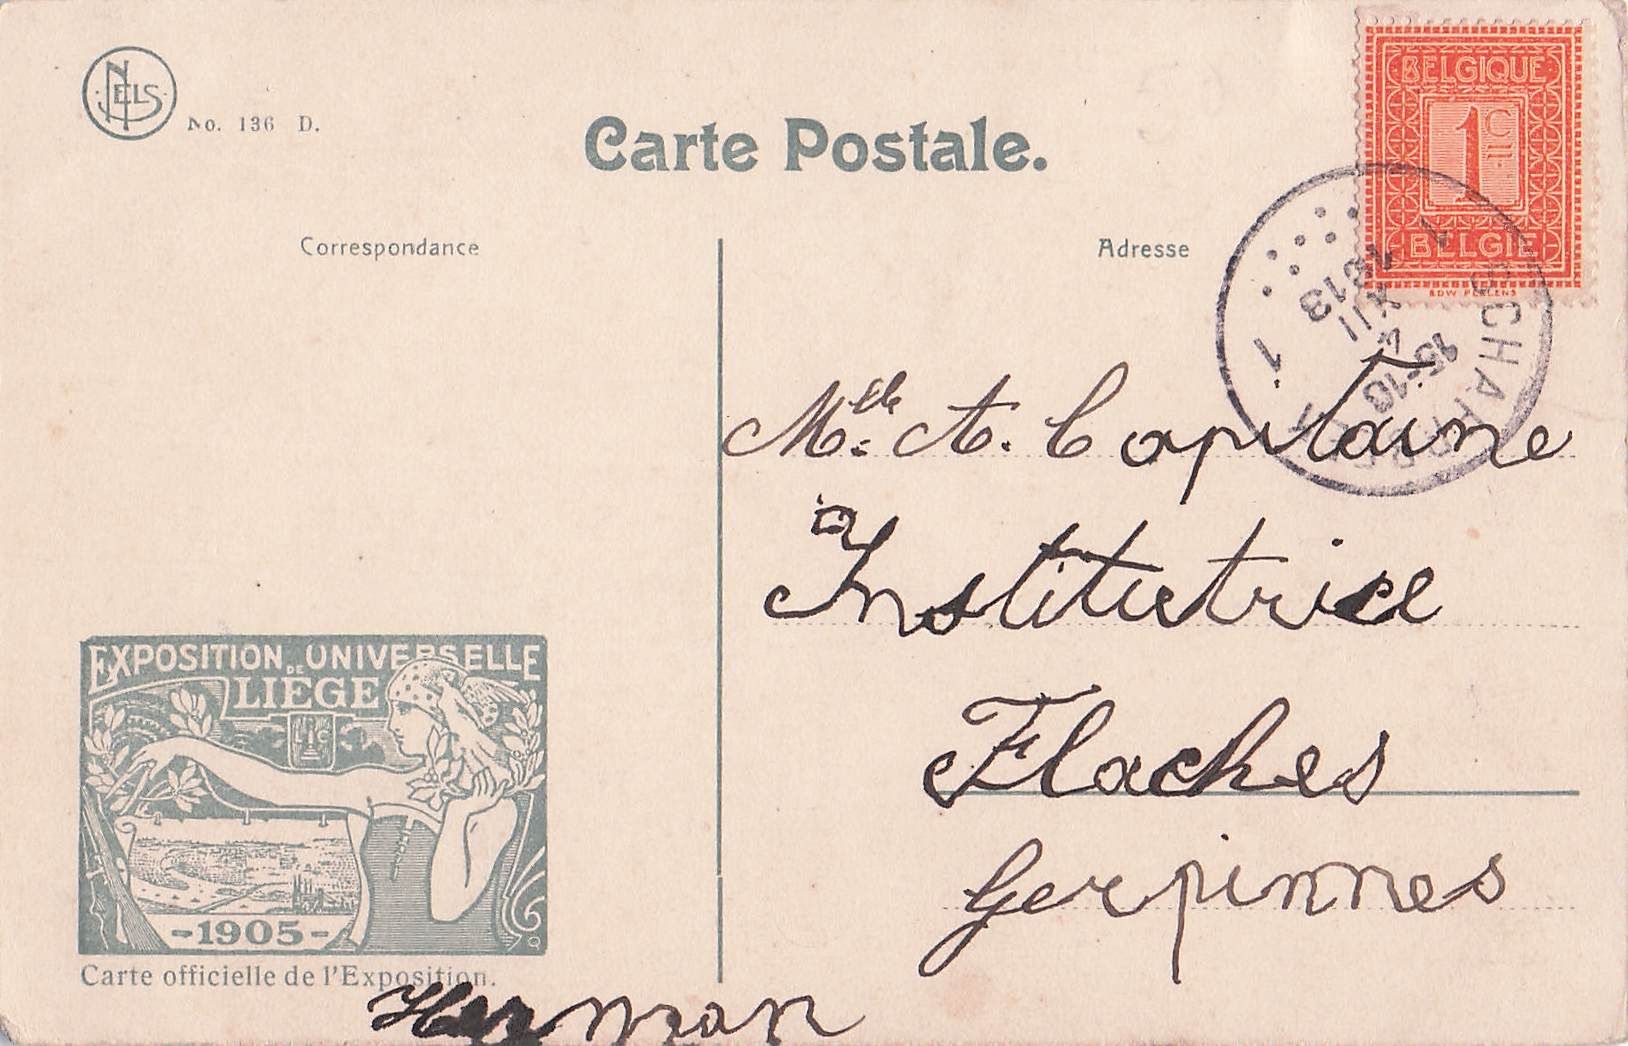 NELS
No. 136 D.
Carte Postale.
BELGIQUE
1 C
BELGIE
Correspondance
Adresse
1 SCHAERBEEK 1
15-16
4
XII
1913
Mlle. A. Capitaine
Institutrice
Flaches
Gerpinnes
EXPOSITION UNIVERSELLE
DE LIÉGE
-1905-
Carte officielle de l'Exposition.
Herman